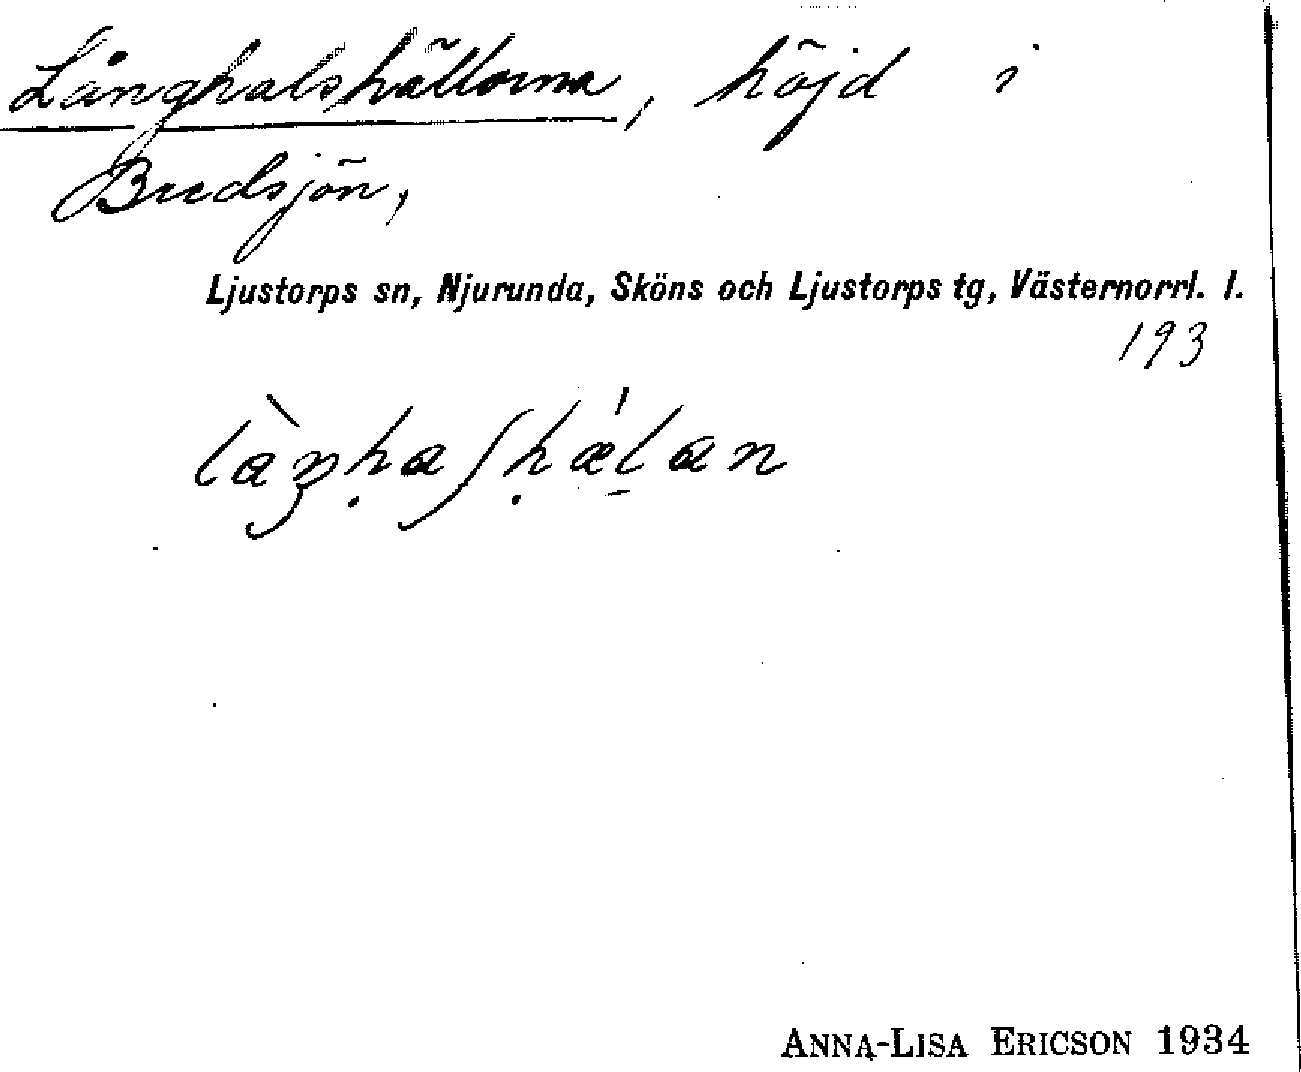 Långhalshällorna, höjd i
Bredsjön,
Ljustorps sn, Njurunda, Sköns och Ljustorps tg, Västernorrl. l.
193
ANNA-LISA ERICSON 1934